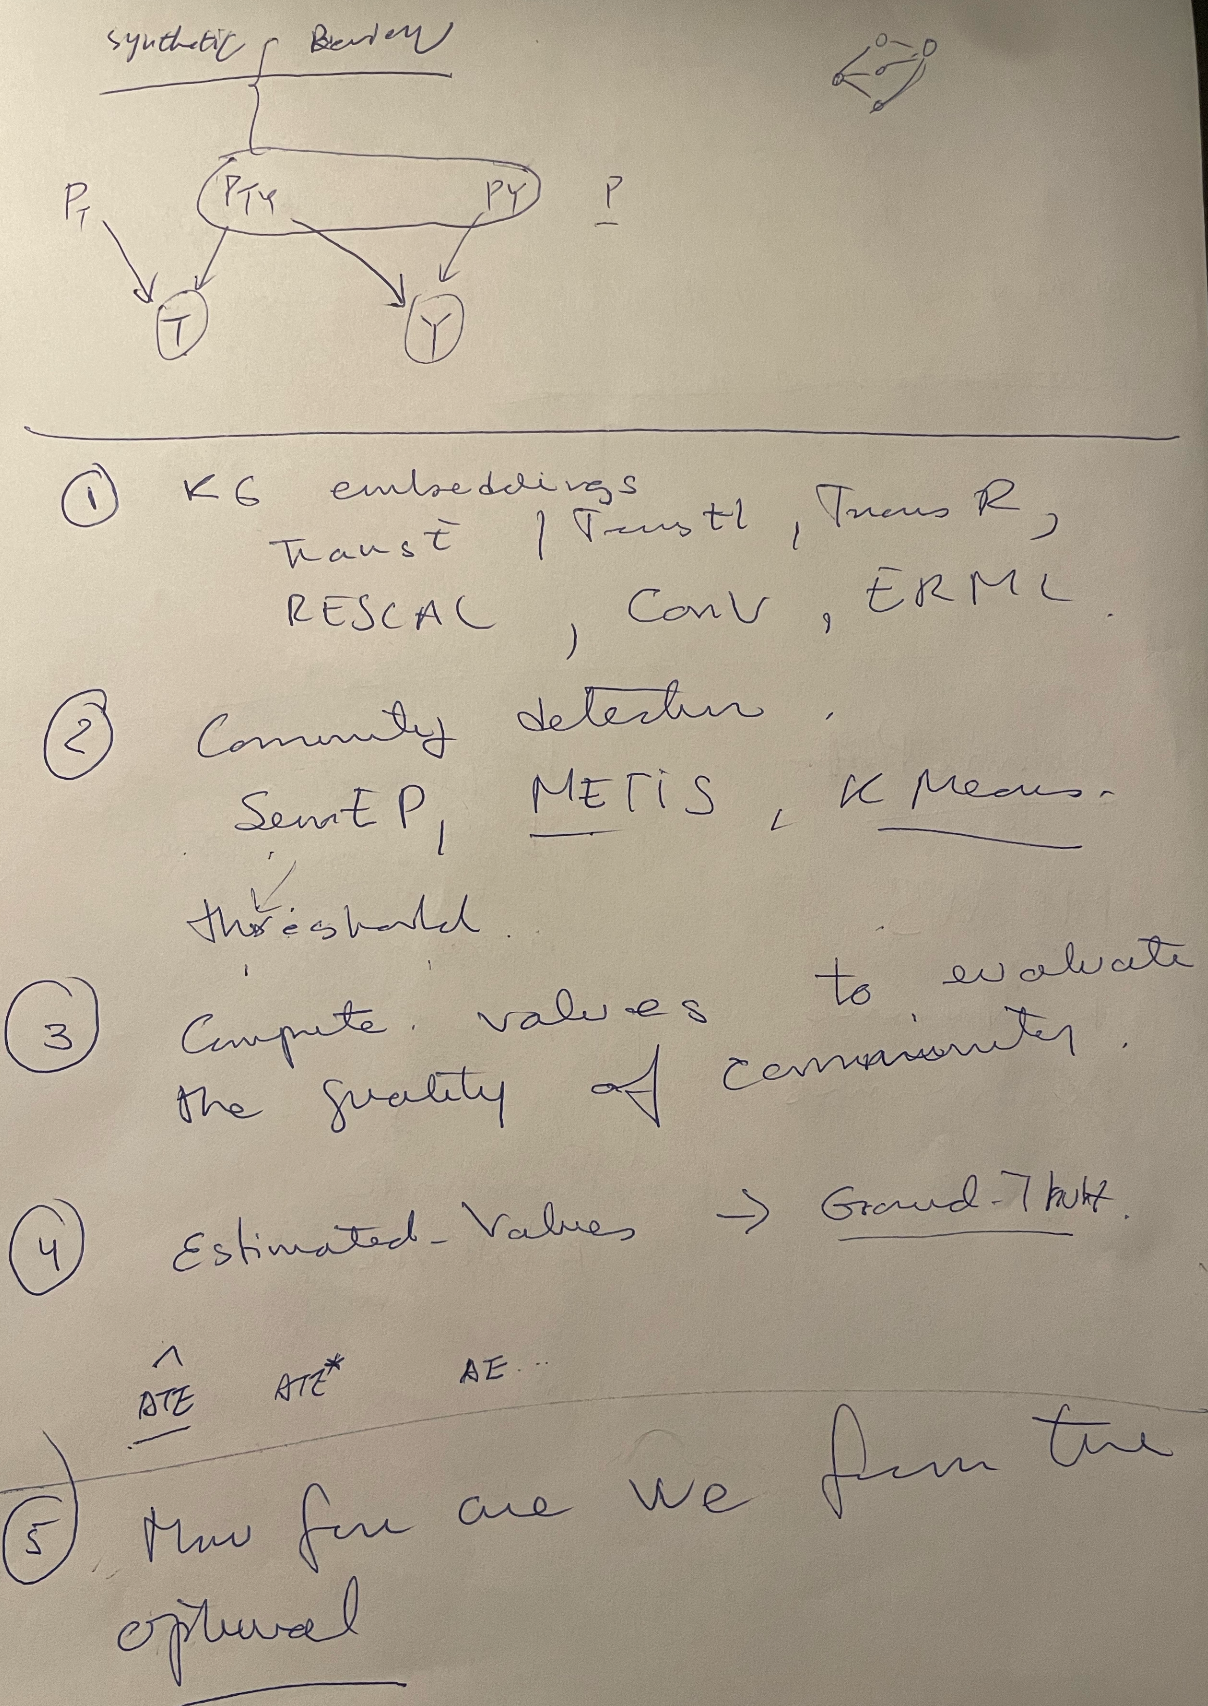 synthetic Review
P_T P_TY PY P
T Y
① KG embeddings
TransE / TransH, TransR,
RESCAL, ConV, ERML.
② Community detection.
SemEP, METIS, K Means.
threshold.
③ Compute values to evaluate
the quality of community.
④ Estimated-Values → Ground-Truth.
^ATE ATE* AE...
⑤ How far are we from the
optimal